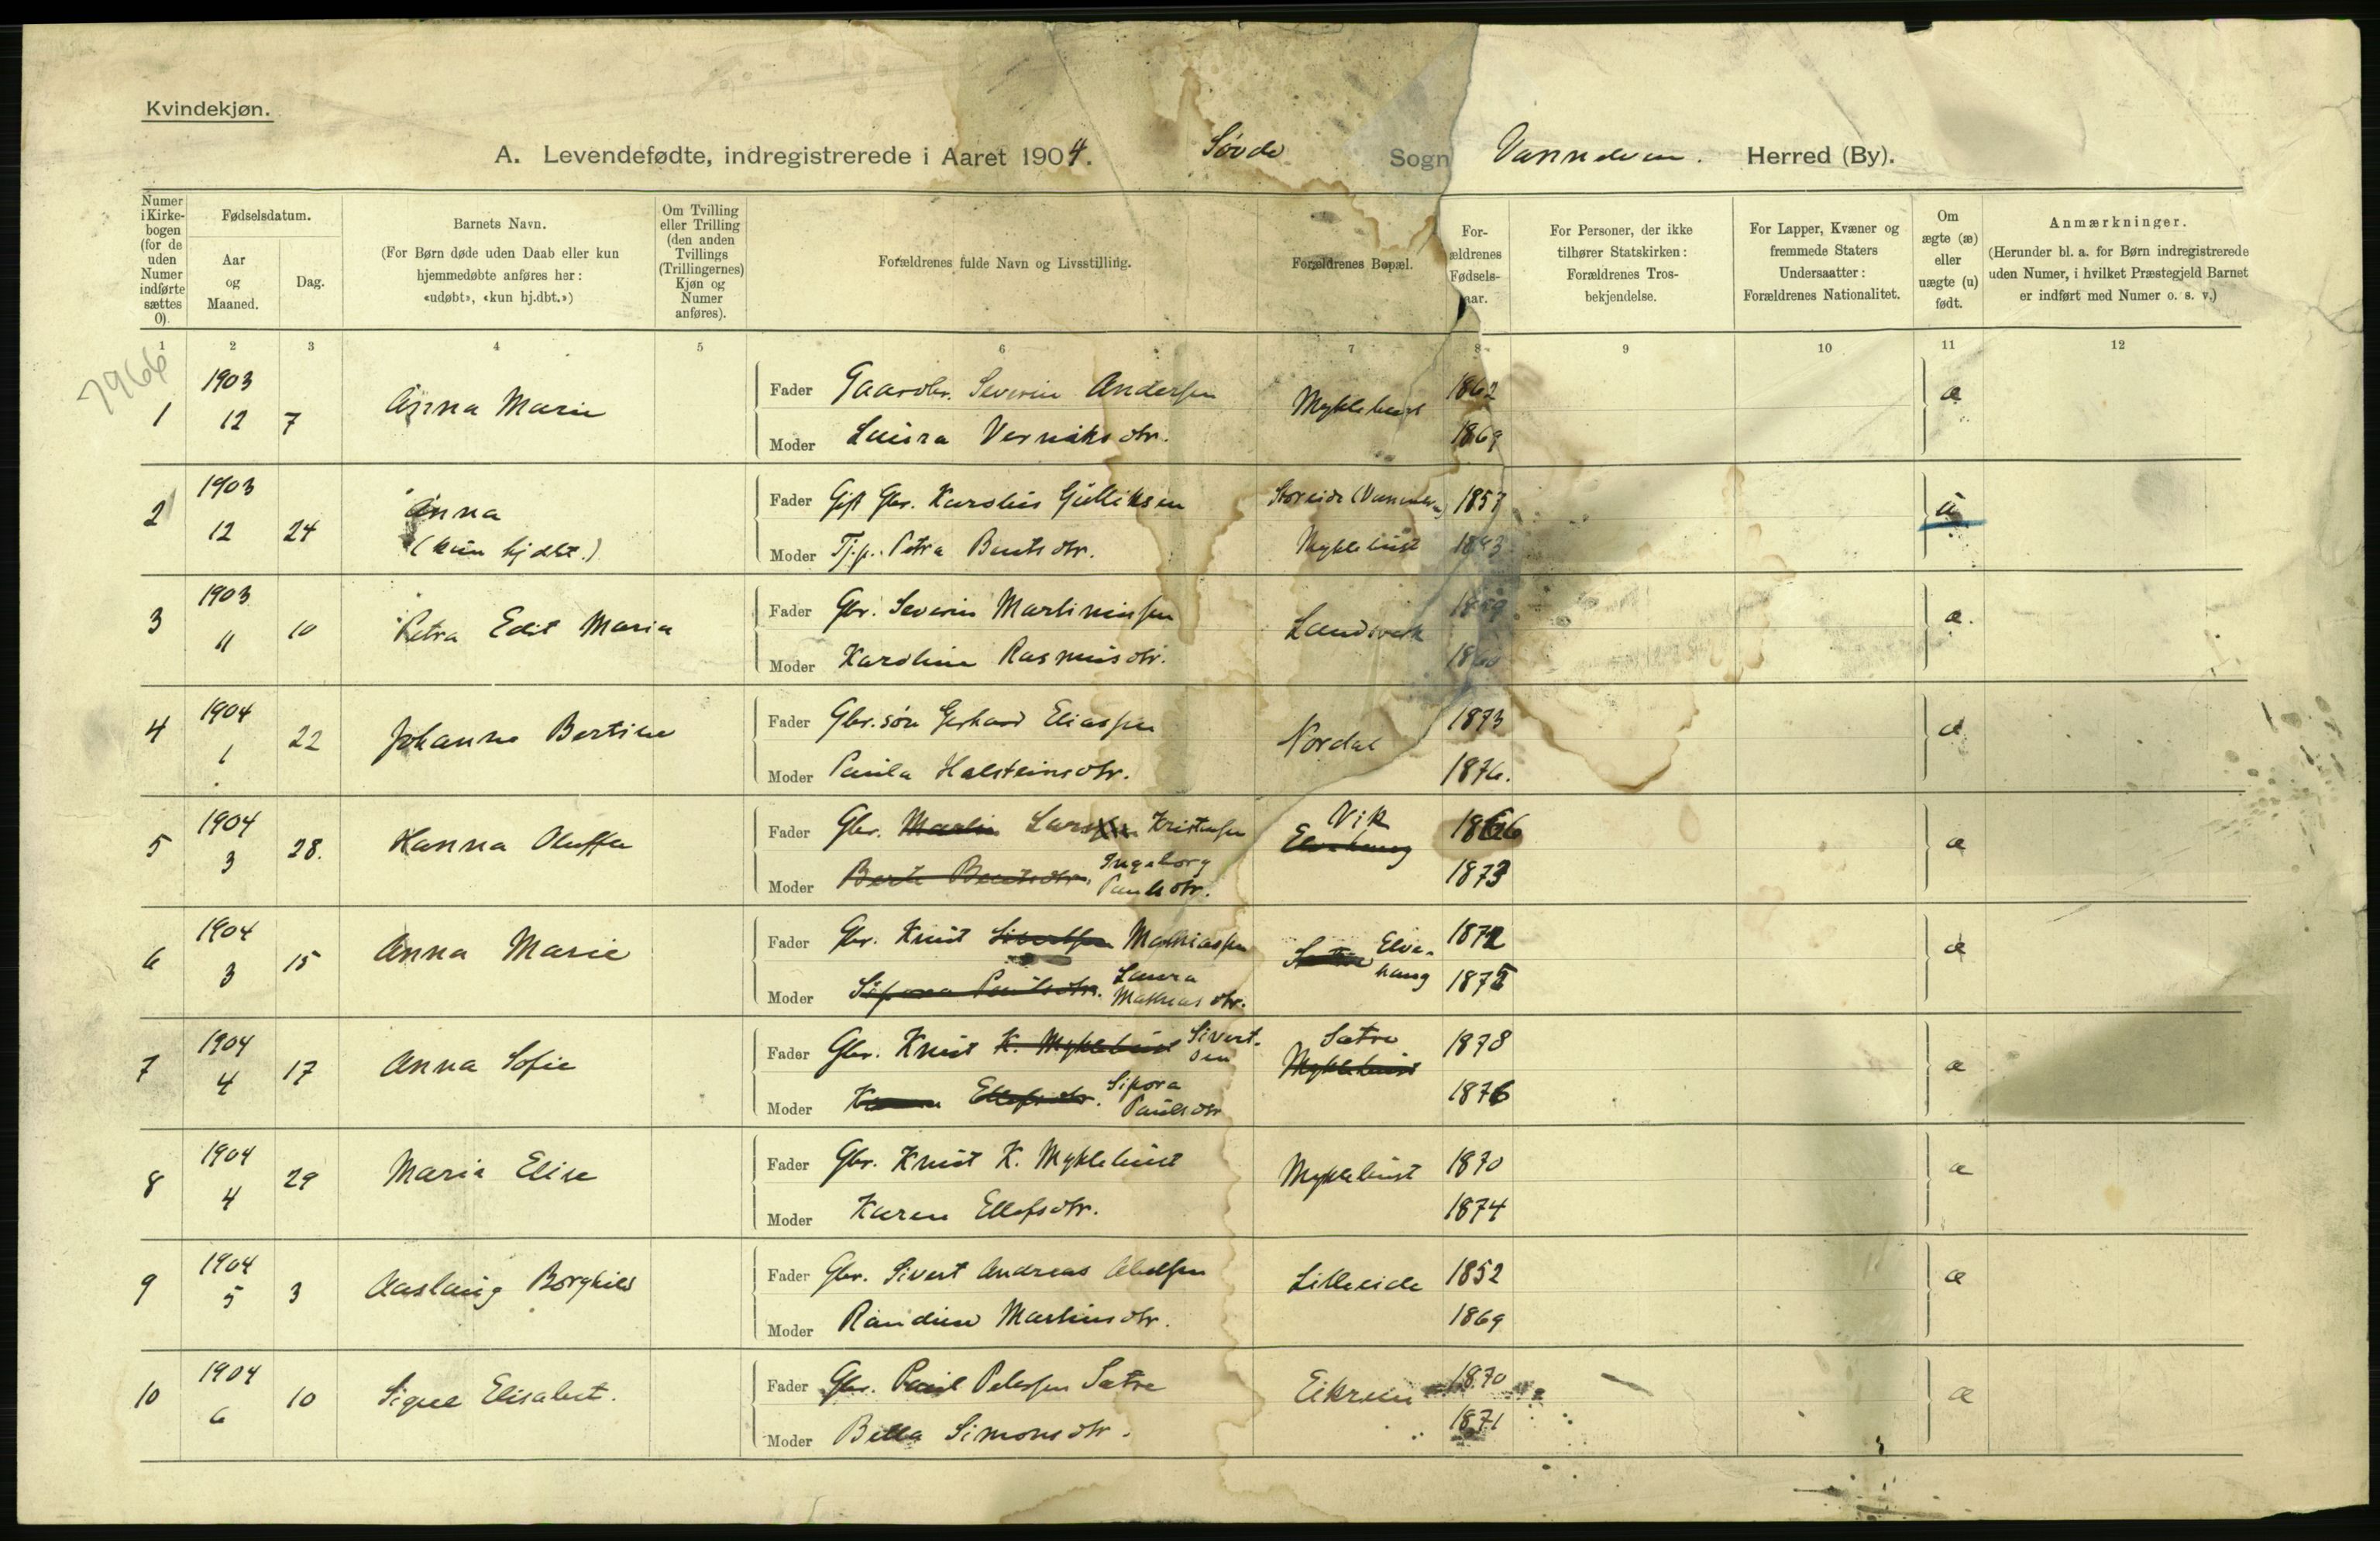 Kvindekjøn.
A. Levendefødte, indregistrerede i Aaret 1904. Søvde Sogn Vannelven. Herred (By).
Numer i Kirkebogen (for de uden Numer indførte sættes 0).
Fødselsdatum.
Aar og Maaned.
Dag.
Barnets Navn.
(For Børn døde uden Daab eller kun hjemmedøbte anføres her: «udøbt», «kun hj.dbt.»)
Om Tvilling eller Trilling (den anden Tvillings (Trillingernes) Kjøn og Numer anføres).
Forældrenes fulde Navn og Livsstilling.
Forældrenes Bopæl.
Forældrenes Fødselsaar.
For Personer, der ikke tilhører Statskirken: Forældrenes Trosbekjendelse.
For Lapper, Kvæner og fremmede Staters Undersaatter: Forældrenes Nationalitet.
Om ægte (æ) eller uægte (u) født.
Anmærkninger.
(Herunder bl. a. for Børn indregistrerede uden Numer, i hvilket Præstegjeld Barnet er indført med Numer o. s. v.)
1 2 3 4 5 6 7 8 9 10 11 12
7966
1 1903 12 7 Anna Marie Fader Gaardbr. Severin Andersen Myklebust 1862 æ
Moder Laura Verniksdtr. 1869
2 1903 12 24 Anna (kun hjdbt.) Fader Gift Gbr. Karolius Gulliksen Storeide (Vannelven) 1857 u
Moder Tj.p. Petra Bentsdtr. Myklebust
3 1903 11 10 Petra Edit Maria Fader Gbr. Severin Martinussen Landsverk 1859 æ.
Moder Karoline Rasmusdtr. 1860
4 1904 1 22 Johanne Bertine Fader Gbr.søn Gerhard Eliassen Nordal 1873 æ
Moder Paula Halsteinsdtr. 1876.
5 1904 3 28. Hanna Oluffa Fader Gbr. Martin Lars Kristensen Vik Elvehaug 1866 æ
Moder Berte Bentsdtr. Ingeborg Paulsdtr. 1873
6 1904 3 15 Anna Marie Fader Gbr. Knut Sivertsen Mathiassen Sætre Elvehaug 1872 æ
Moder Sipora Paulsdtr. Laura Mathiasdtr. 1875
7 1904 4 17 Anna Sofie Fader Gbr. Knut K. Myklebust Sivertsen Sætre Myklebust 1878 æ
Moder Karen Ellefsdtr. Sipora Paulsdtr 1876
8 1904 4 29 Maria Elise Fader Gbr. Knut K. Myklebust Myklebust 1870 æ
Moder Karen Ellefsdtr. 1874
9 1904 5 3 Aaslaug Borghild Fader Gbr. Sivert Andreas Abelsen Lilleeide 1852 æ
Moder Randine Martinsdtr. 1869
10 1904 6 10 Signe Elisabet. Fader Gbr. Paul Petersen Sætre Eikrem 1870 æ
Moder Bella Simonsdtr. 1871